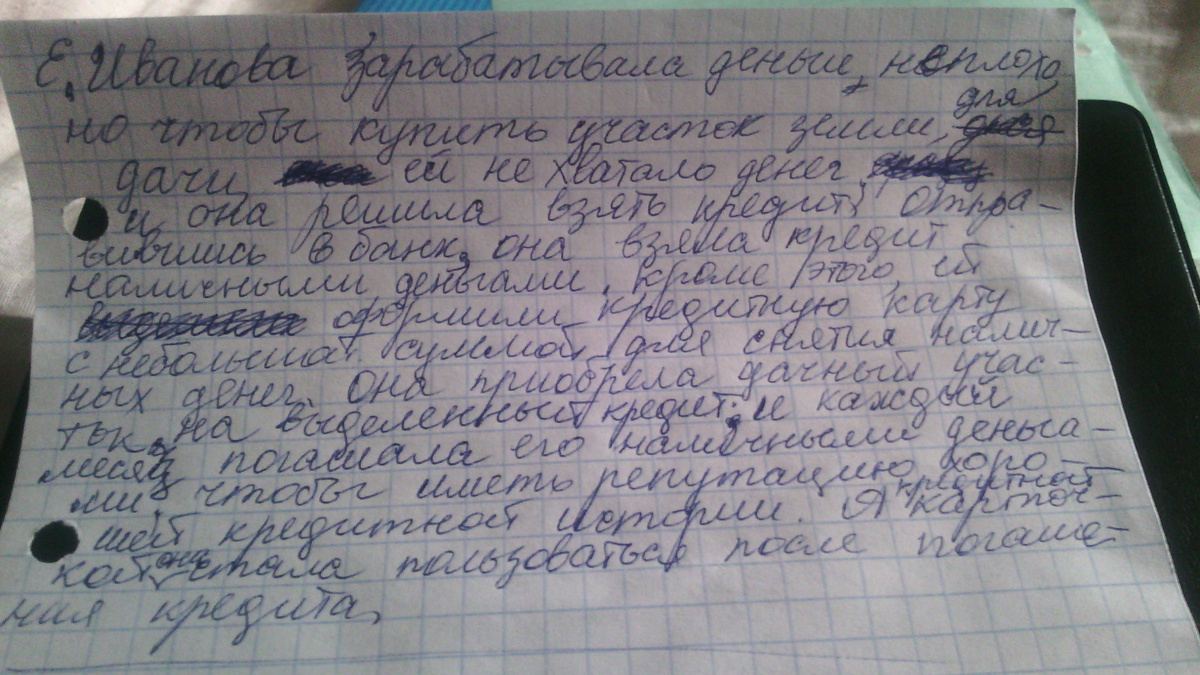 Е. Иванова зарабатывала деньги, неплохо
но чтобы купить участок земли, для
дачи ей не хватало денег
и она решила взять кредит. Отпра-
вившись в банк, она взяла кредит
наличными деньгами. кроме этого, ей
оформили кредитную карту
с небольшой суммой для снятия налич-
ных денег. Она приобрела дачный учас-
ток, на выделенный кредит, и каждый
месяц погашала его наличными деньга-
ми, чтобы иметь репутацию хоро-
шей кредитной истории. А кредитной карточ-
кой она стала пользоваться после погаше-
ния кредита.